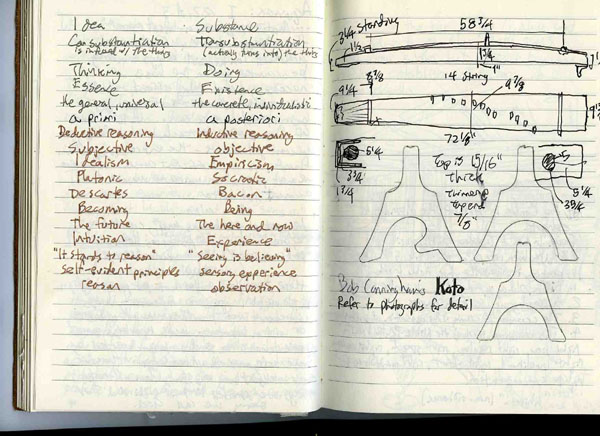 Idea Substance
Consubstantiation Transubstantiation
is infused w/ the thing (actually turns into) the thing
Thinking Doing
Essence Existence
the general, universal the concrete, individualistic
a priori a posteriori
Deductive reasoning Inductive reasoning
Subjective objective
Idealism Empiricism
Platonic Socratic
Descartes Bacon
Becoming Being
The future The here and now
Intuition Experience
"It stands to reason" "Seeing is believing"
self-evident principles sensory experience
reason observation
3 1/4 standing 58 3/4
1 1/2
3/4
1"
14 string
9 1/4
9 7/8
72 1/8"
5 1/4
3 3/4
1 3/4
Top is 15/16"
thick
thinner @
top end
7/8"
5 1/4
3 3/4
Bob Cunninghams Koto
Refer to photographs for detail